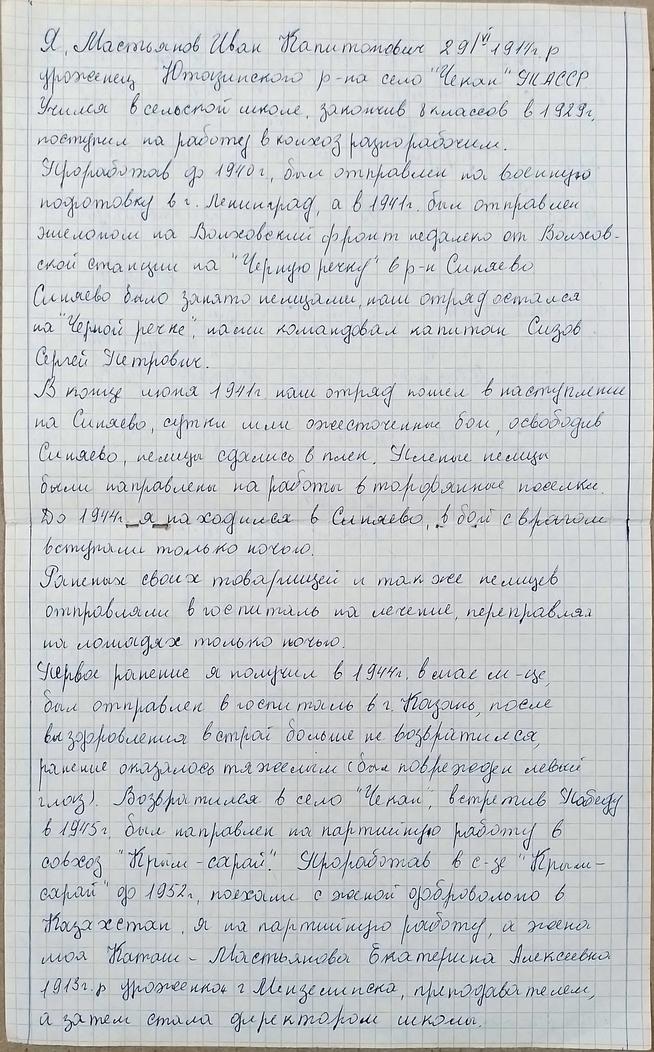 Я, Мастьянов Иван Капитонович 29/VI 1914г.р
уроженец Ютазинского р-на село "Чекан" ТАССР
Учился в сельской школе, закончив 8 классов в 1929г,
поступил на работу в колхоз разнорабочим.
Проработав до 1940г, был отправлен на военную
подготовку в г. Ленинград, а в 1941г. был отправлен
эшелоном на Волховский фронт недалеко от Волхов-
ской станции на "Черную речку" в р-н Синяево
Синяево было занято немцами, наш отряд остался
на "Черной речке", нами командовал капитан Сизов
Сергей Петрович.
В конце июня 1941г наш отряд пошел в наступление
на Синяево, сутки шли ожесточенные бои, освободив
Синяево, немцы сдались в плен. Пленые немцы
были направлены на работы в торфянные поселки.
До 1944г. я находился в Синяево, в бой с врагом
вступали только ночью.
Раненых своих товарищей и также немцев
отправляли в госпиталь на лечение, переправляя
на лошадях только ночью.
Первое ранение я получил в 1944г. в мае м-це,
был отправлен в госпиталь в г. Казань, после
выздоровления в строй больше не возвратился,
ранение оказалось тяжелым (был поврежден левый
глаз). Возвратился в село "Чекан", встретив Победу
в 1945г. был направлен на партийную работу в
совхоз "Крым-сарай". Проработав в с-зе "Крым-
сарай" до 1952г, поехали с женой добровольно в
Казахстан, я на партийную работу, а жена
моя Каташ - Мастьянова Екатерина Алексеевна
1913г.р уроженка г Мензелинска, преподавателем,
а затем стала директором школы.